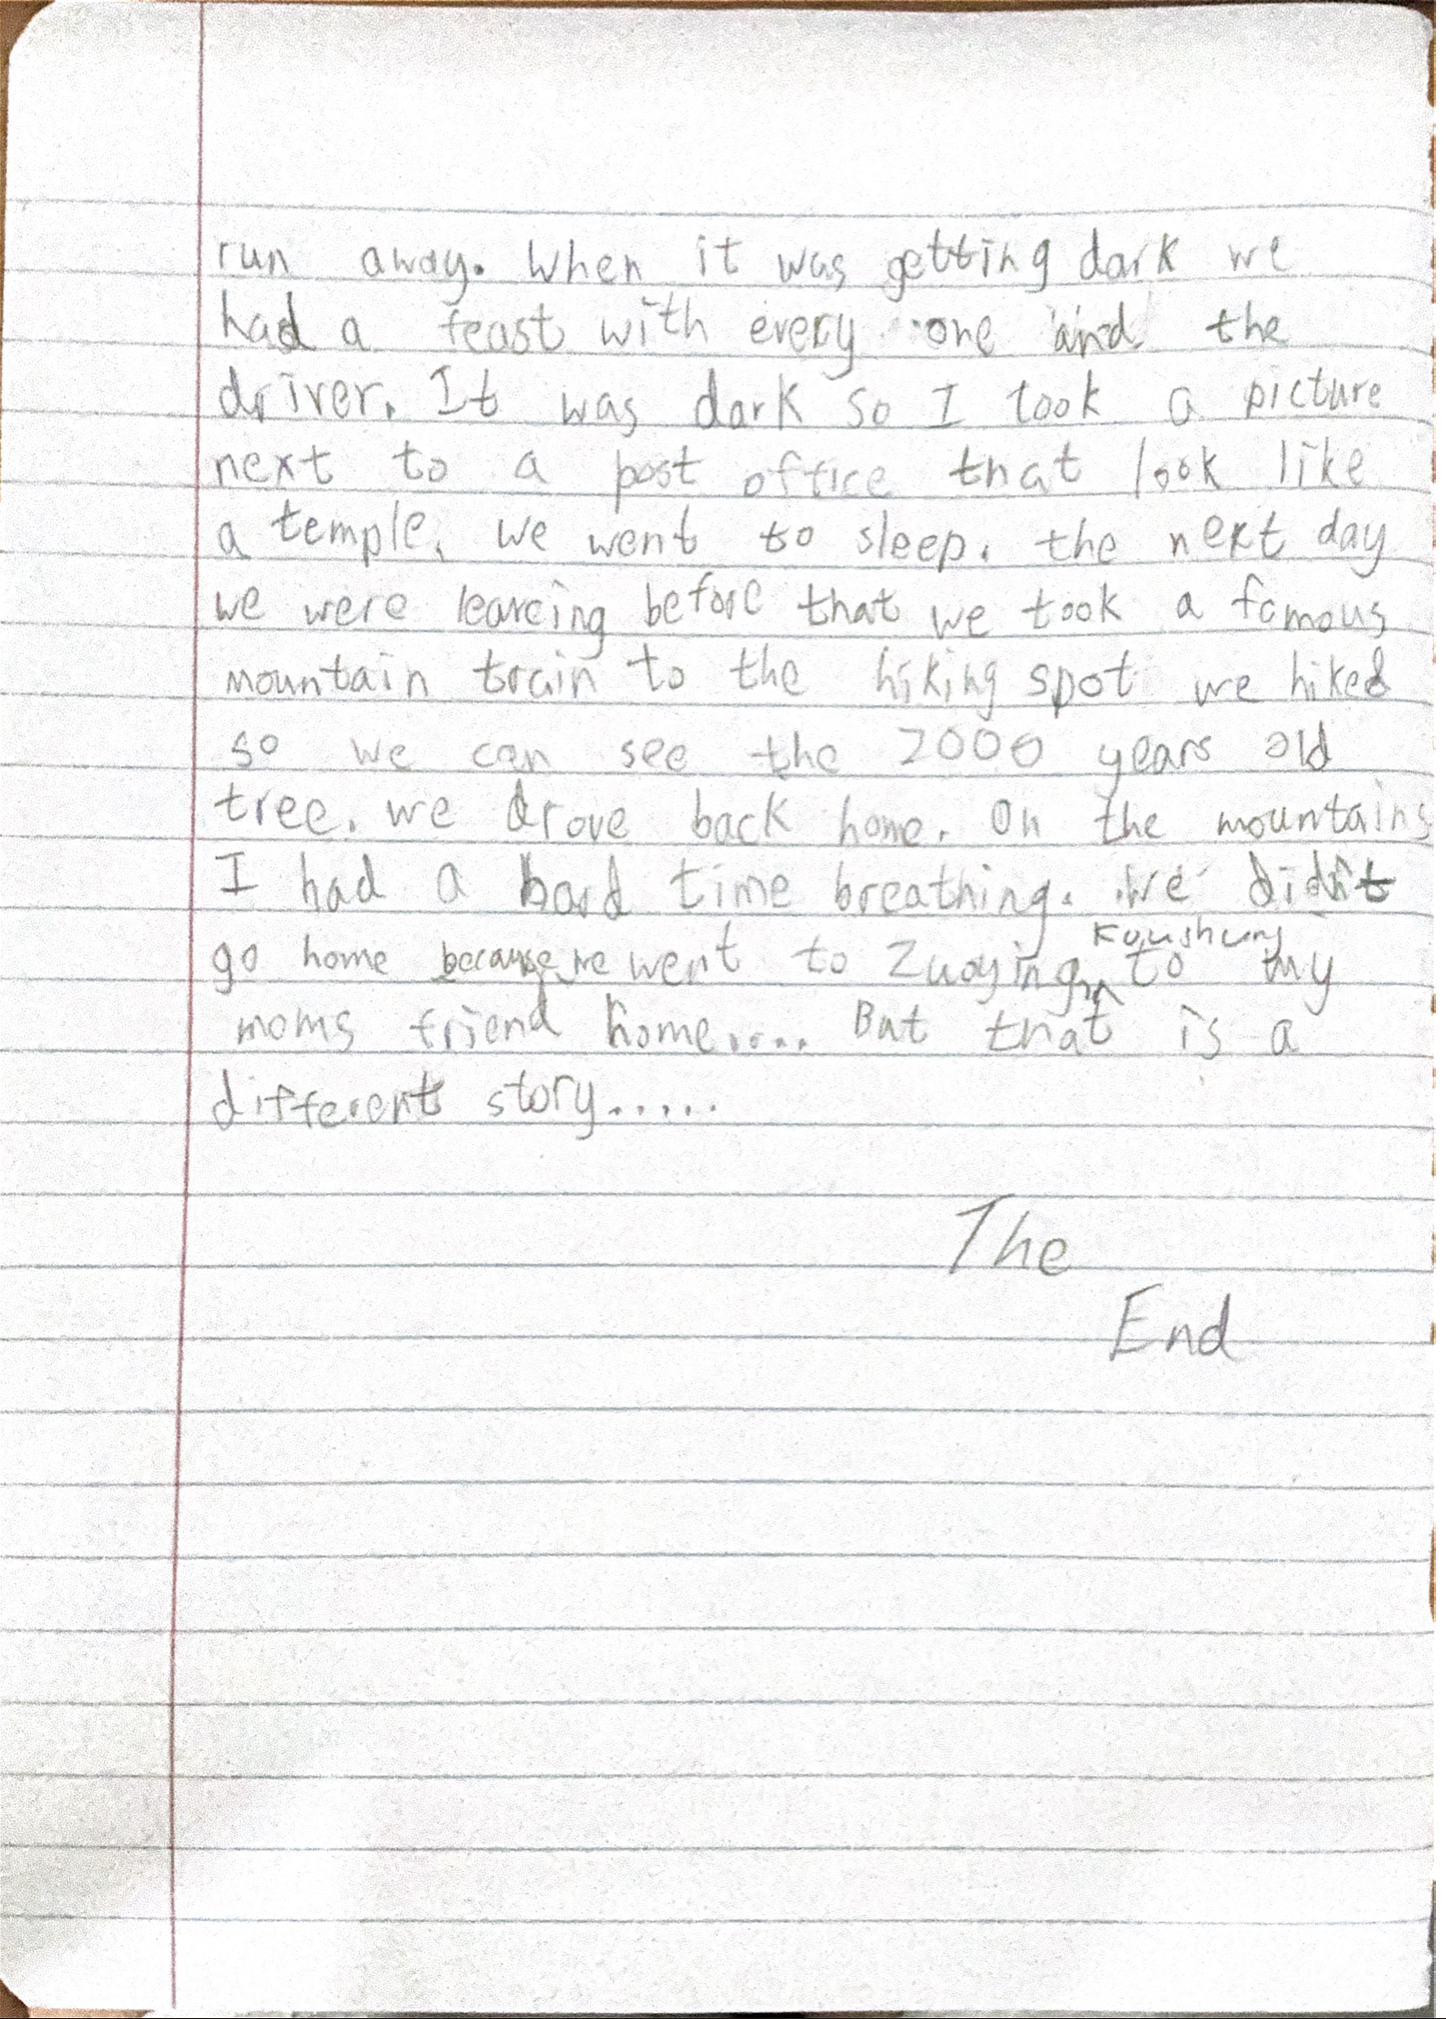 run away. When it was getting dark we
had a feast with every one and the
driver. It was dark so I took a picture
next to a post office that look like
a temple. we went to sleep. the next day
we were leaveing before that we took a famous
mountain train to the hiking spot we hiked
so we can see the 2000 years old
tree. we drove back home. On the mountains
I had a hard time breathing. we didn't
go home because we went to Zuoying, Koushung to my
moms friend home.... But that is a
different story.....
The
End